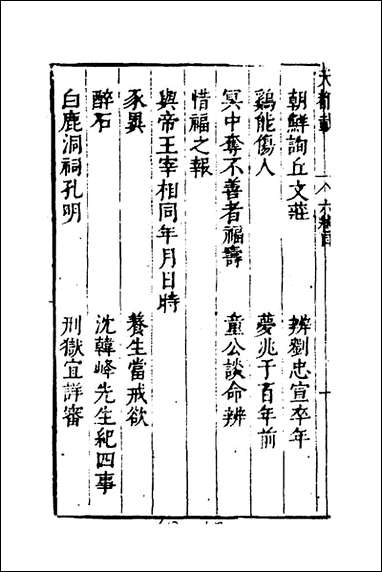 天都載 六卷目
朝鮮詢丘文莊 辨劉忠宣卒年
鷄能傷人 夢兆于百年前
冥中奪不善者福壽 童公談命辨
惜福之報
與帝王宰相同年月日時
豕異 養生當戒欲
醉石 沈韓峰先生紀四事
白鹿洞祠孔明 刑獄宜詳審